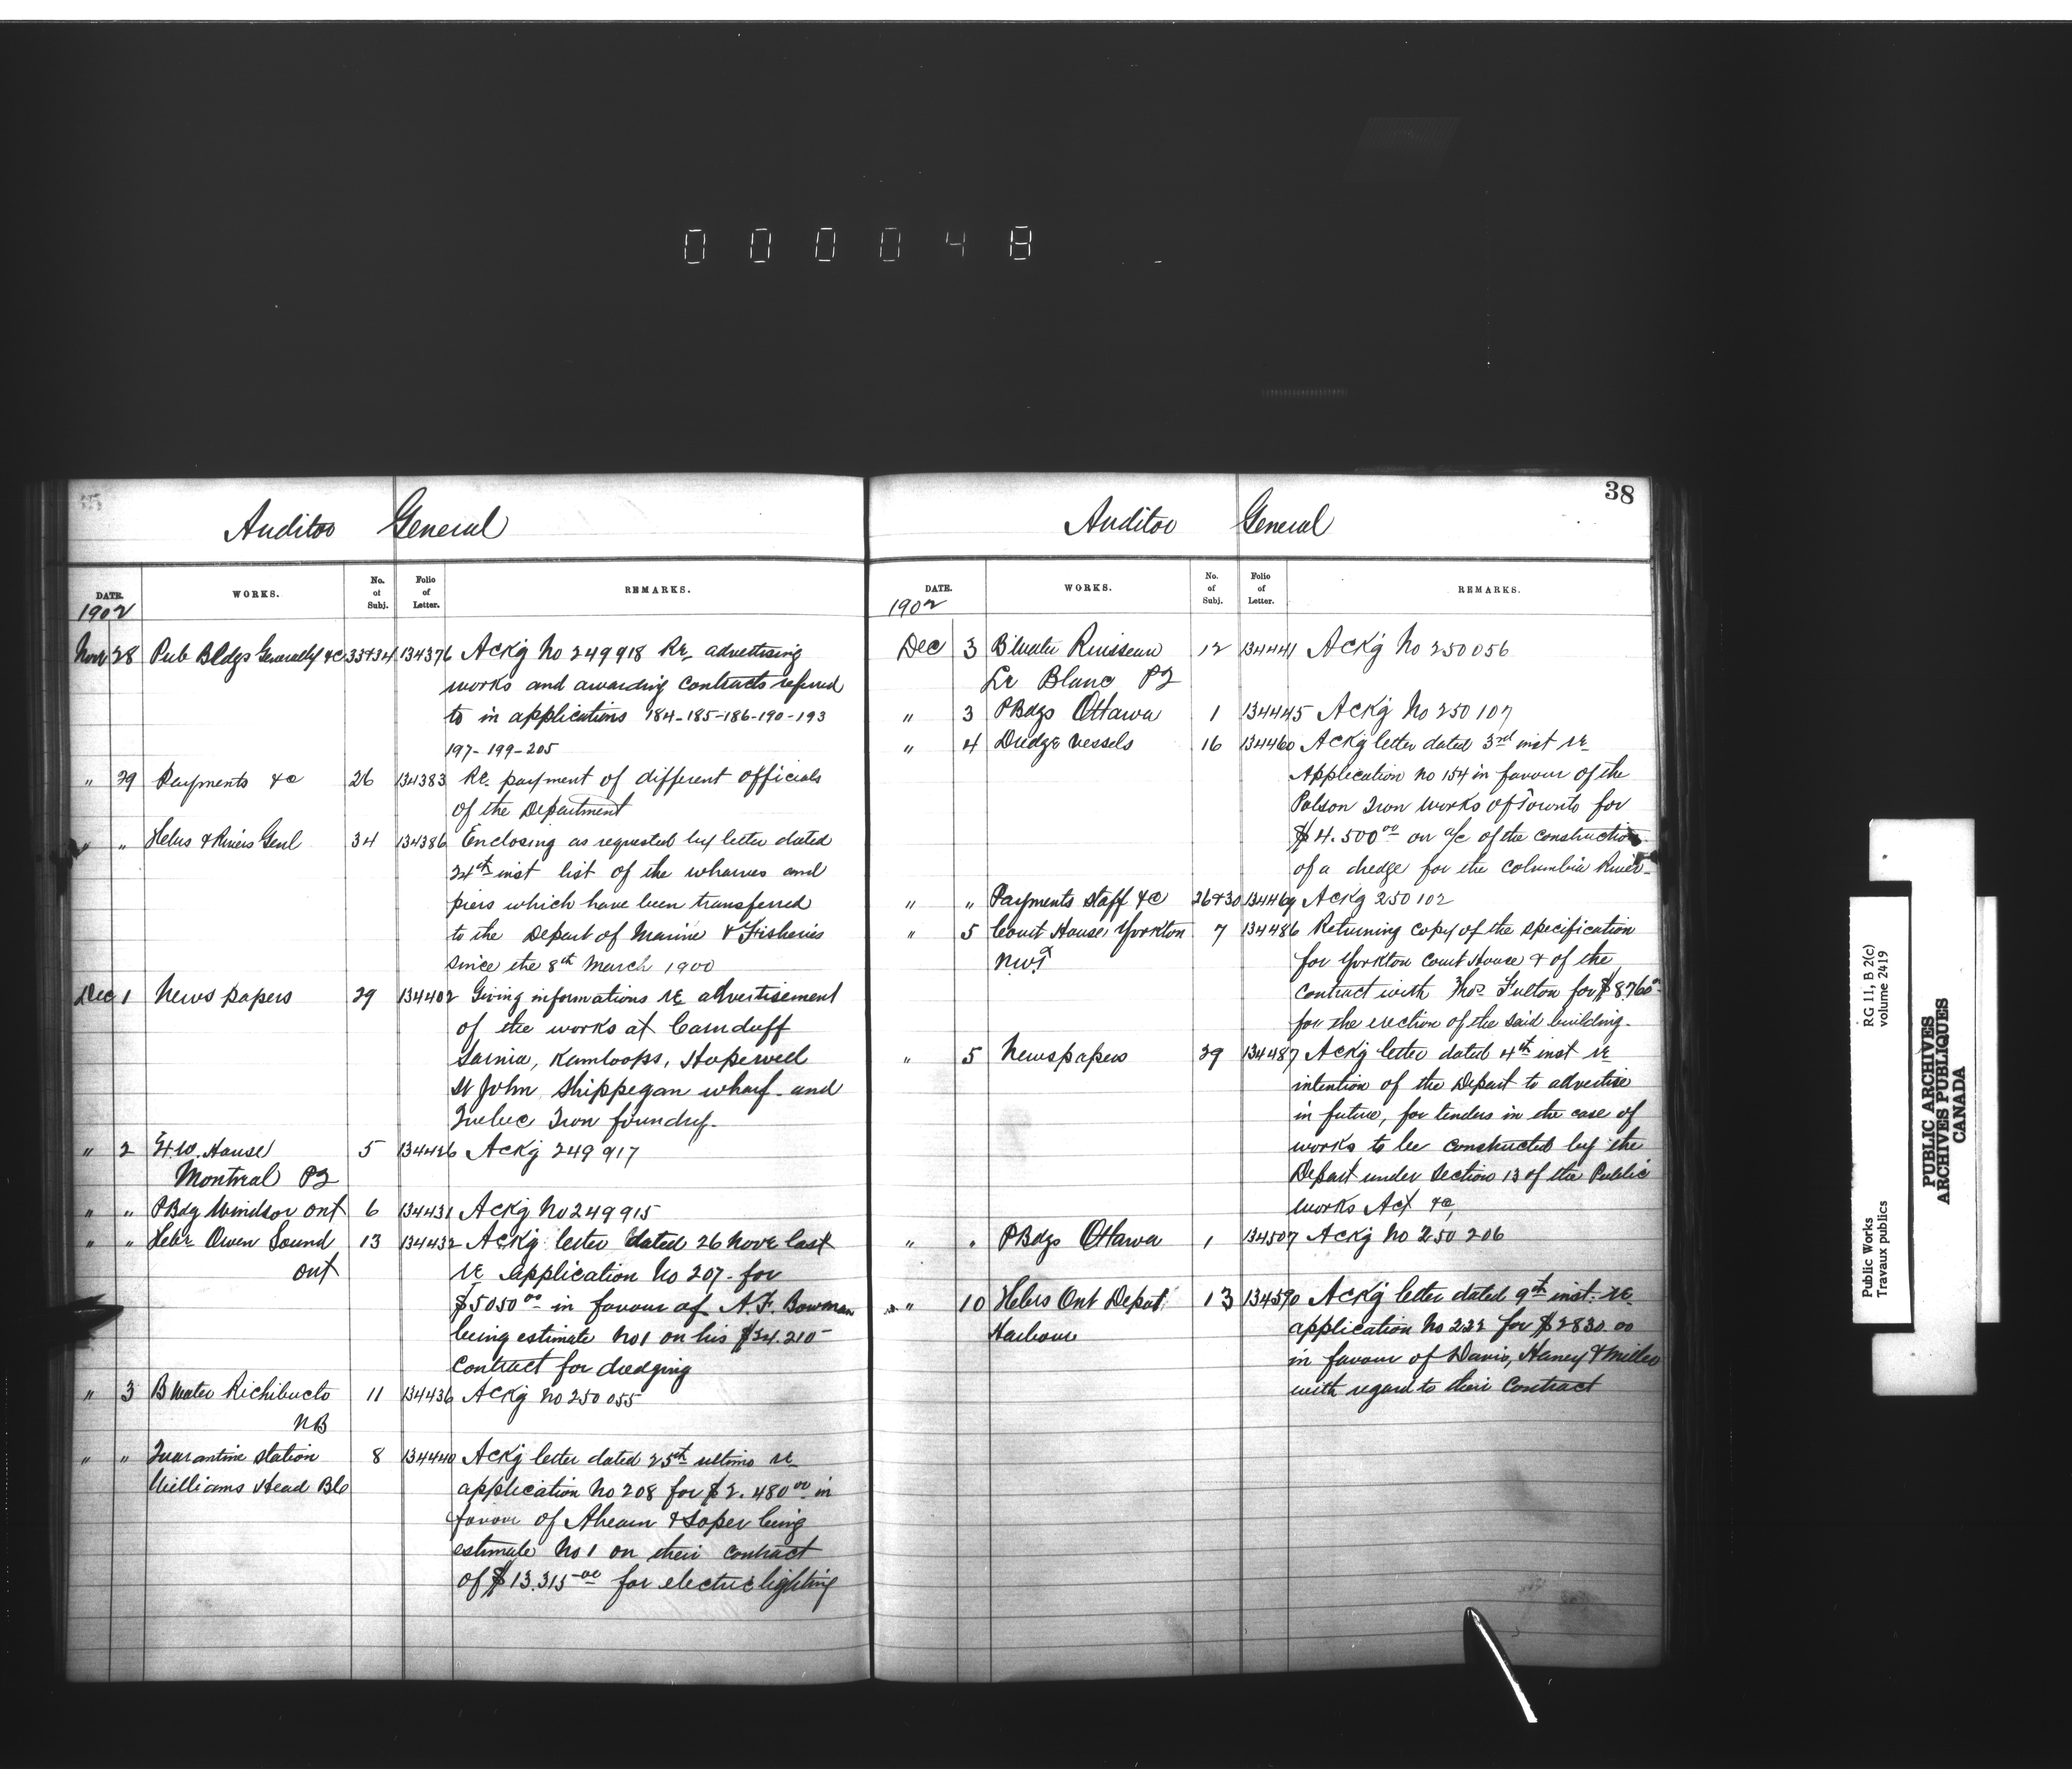 000048
38
Auditor General
DATE. WORKS. No. of Subj. Folio of Letter. REMARKS.
1902
Nov 28 Pub Bldgs Generally &c 33&34 134376 Ackg No 249918 Re advertising
works and awarding contracts referred
to in applications 184-185-186-190-193
197-199-205
" 29 Payments &c 26 134383 Re. payment of different officials
of the Department
" " Hebrs & Rivers Genl 34 134386 Enclosing as requested by letter dated
24th inst list of the wharves and
piers which have been transferred
to the Depart of Marine & Fisheries
since the 8th March 1900
Dec 1 News papers 29 134402 Giving informations re advertisement
of the works at Carnduff
Sarnia, Kamloops, Hopewell
St John Shippegan wharf and
Quebec Iron foundry.
" 2 Ex. W. House 5 134426 Ackg 249917
Montreal PQ
" " PBdg Windsor Ont 6 134431 Ackg No 249915
" " Hebr Owen Sound 13 134432 Ackg letter dated 26 Nove last
Ont re application No 207 for
$5050 00 in favour of A. F. Bowman
being estimate No 1 on his $34.210-
contract for dredging
" 3 B Water Richibucto 11 134436 Ackg No 250055
NB
" " Quarantine Station 8 134440 Ackg letter dated 25th ultimo re
Williams Head BC application No 208 for $2.480 00 in
favour of Ahearn & Soper being
estimate No 1 on their contract
of $13.315 00 for electric lighting
Auditor General
DATE. WORKS. No. of Subj. Folio of Letter. REMARKS.
1902
Dec 3 Bwater Ruisseau 12 134441 Ackg No 250056
Le Blanc PQ
" 3 PBdgs Ottawa 1 134445 Ackg No 250107
" 4 Dredge vessels 16 134460 Ackg letter dated 3rd inst re
Application no 154 in favour of the
Polson Iron Works of Toronto for
$4.500 00 on a/c of the construction
of a dredge for the Columbia River
" " Payments Staff &c 26&30 134469 Ackg 250102
" 5 Court House Yorkton 7 134486 Returning copy of the specification
NWT for Yorkton Court House & of the
contract with Thos Fulton for $8760
for the erection of the said building.
" 5 Newspapers 29 134487 Ackg letter dated 4th inst re
intention of the Depart to advertise
in future, for tenders in the case of
works to be constructed by the
Depart under section 13 of the Public
Works Act &c,
" " PBdgs Ottawa 1 134507 Ackg No 250206
" 10 Hebrs Ont Depot 13 134590 Ackg letter dated 9th inst. re
Harbour application No 222 for $2830.00
in favour of Davis, Haney & Miller
with regard to their contract
Public Works RG 11, B 2(c)
Travaux publics volume 2419
PUBLIC ARCHIVES
ARCHIVES PUBLIQUES
CANADA